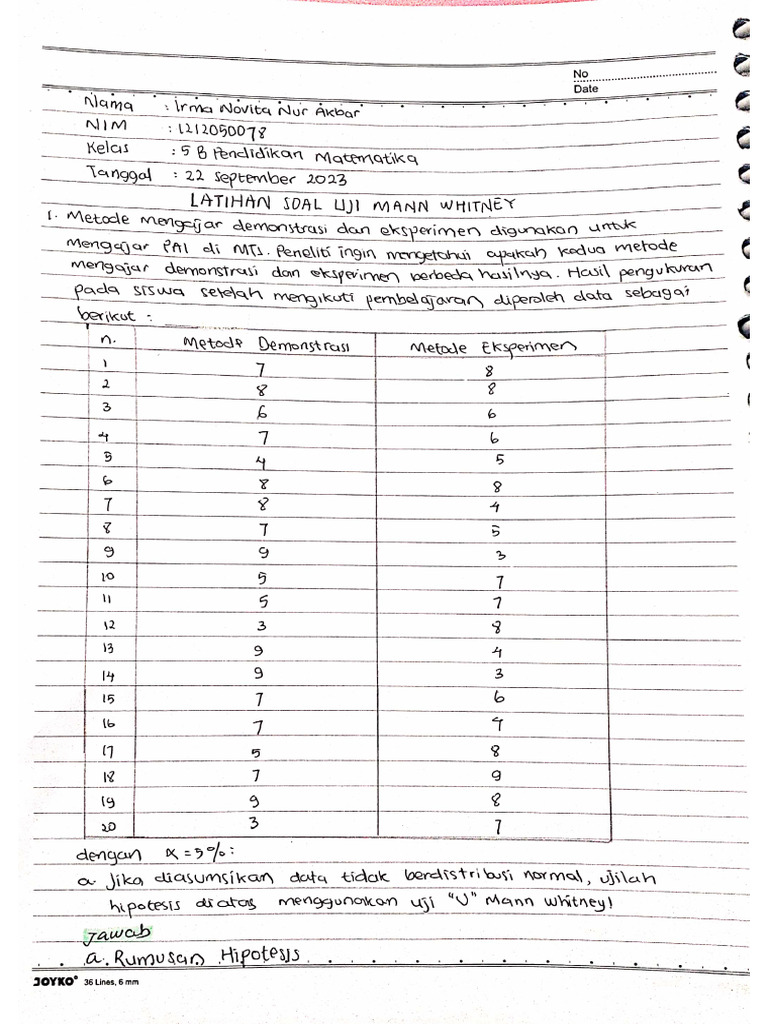 No
Date
Nama : Irma Novita Nur Akbar
NIM : 1212050078
Kelas : 5 B Pendidikan Matematika
Tanggal : 22 September 2023
LATIHAN SOAL UJI MANN WHITNEY
1. Metode mengajar demonstrasi dan eksperimen digunakan untuk
mengajar PAI di MTs. Peneliti ingin mengetahui apakah kedua metode
mengajar demonstrasi dan eksperimen berbeda hasilnya. Hasil pengukuran
pada siswa setelah mengikuti pembelajaran diperoleh data sebagai
berikut :
n. Metode Demonstrasi Metode Eksperimen
1 7 8
2 8 8
3 6 6
4 7 6
5 4 5
6 8 8
7 8 4
8 7 5
9 9 3
10 5 7
11 5 7
12 3 8
13 9 4
14 9 3
15 7 6
16 7 4
17 5 8
18 7 9
19 9 8
20 3 7
dengan α = 5% :
a. Jika diasumsikan data tidak berdistribusi normal, ujilah
hipotesis diatas menggunakan uji "U" Mann Whitney!
Jawab
a. Rumusan Hipotesis
JOYKO® 36 Lines, 6 mm